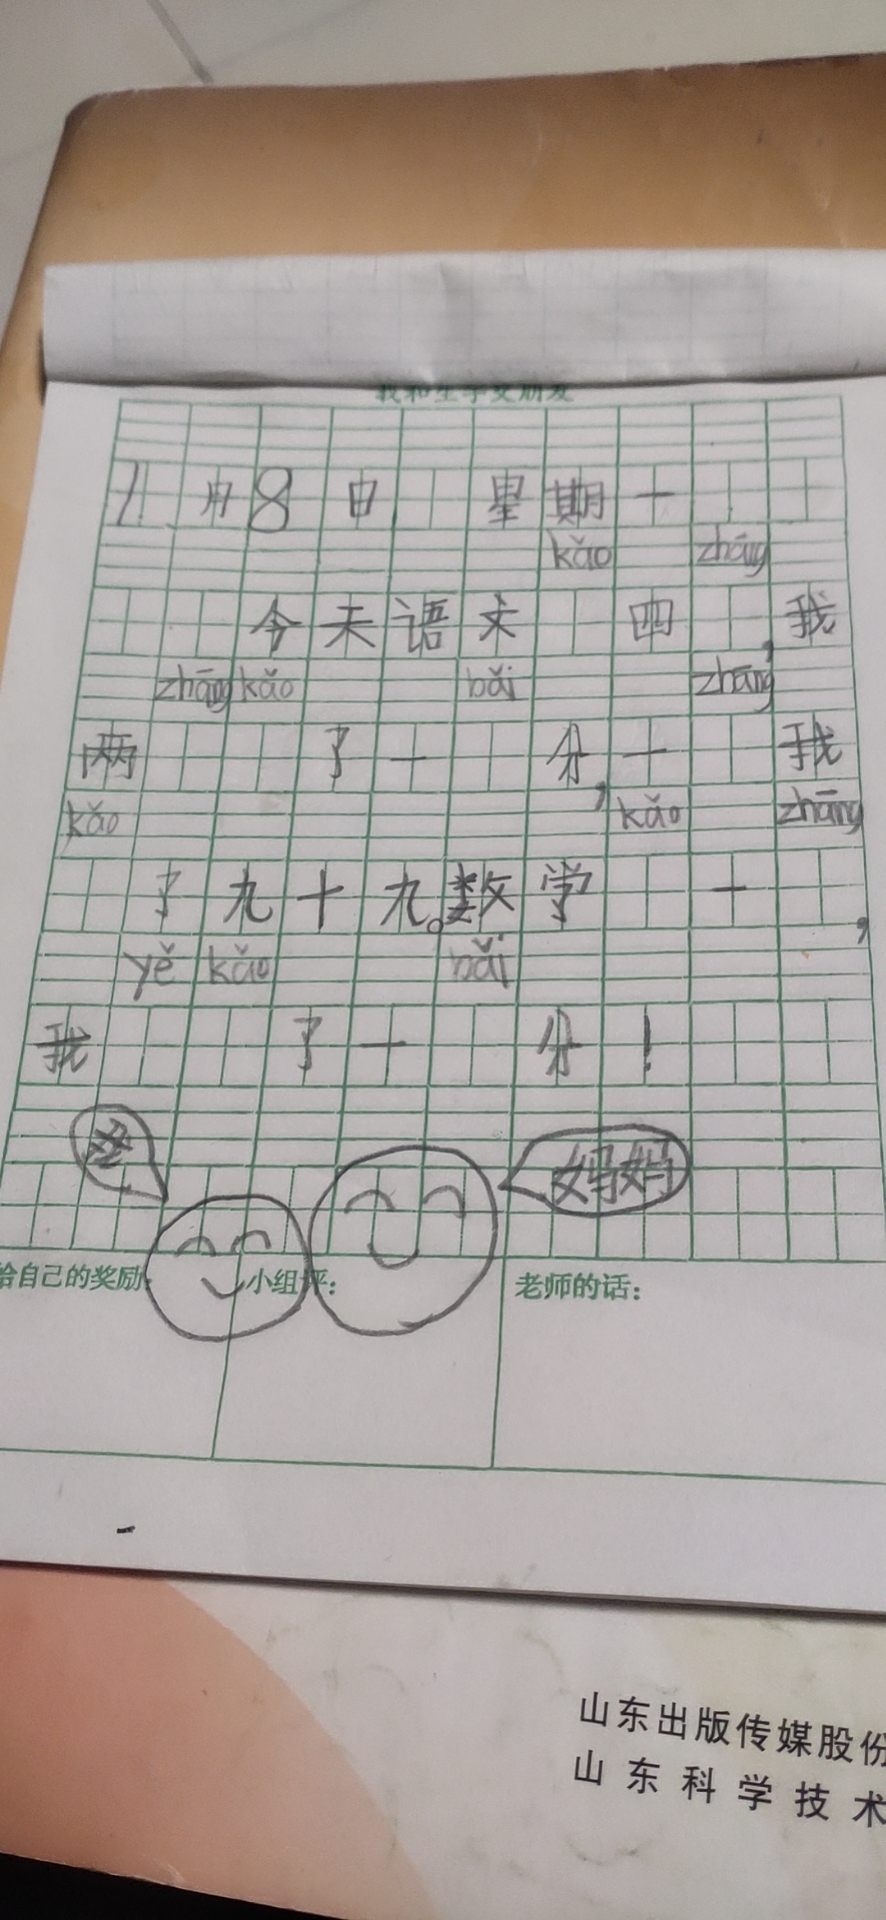 我和生字交朋友
11月8日 星期一
kǎo zhāng
今天语文 四 ，我
zhāng kǎo bǎi zhāng
两 了一 分，一 我
kǎo kǎo zhāng
了九十九。数学 十 ，
yě kǎo bǎi
我 了一 分！
妈妈
给自己的奖励: 小组评: 老师的话:
山东出版传媒股份
山东科学技术